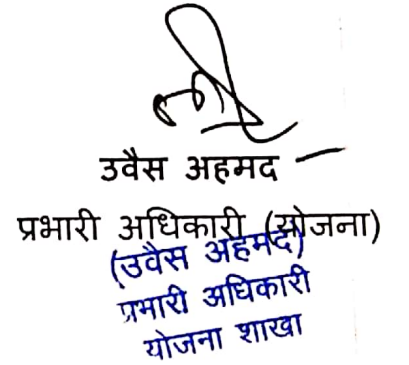 उवैस अहमद
प्रभारी अधिकारी (योजना)
(उवैस अहमद)
प्रभारी अधिकारी
योजना शाखा